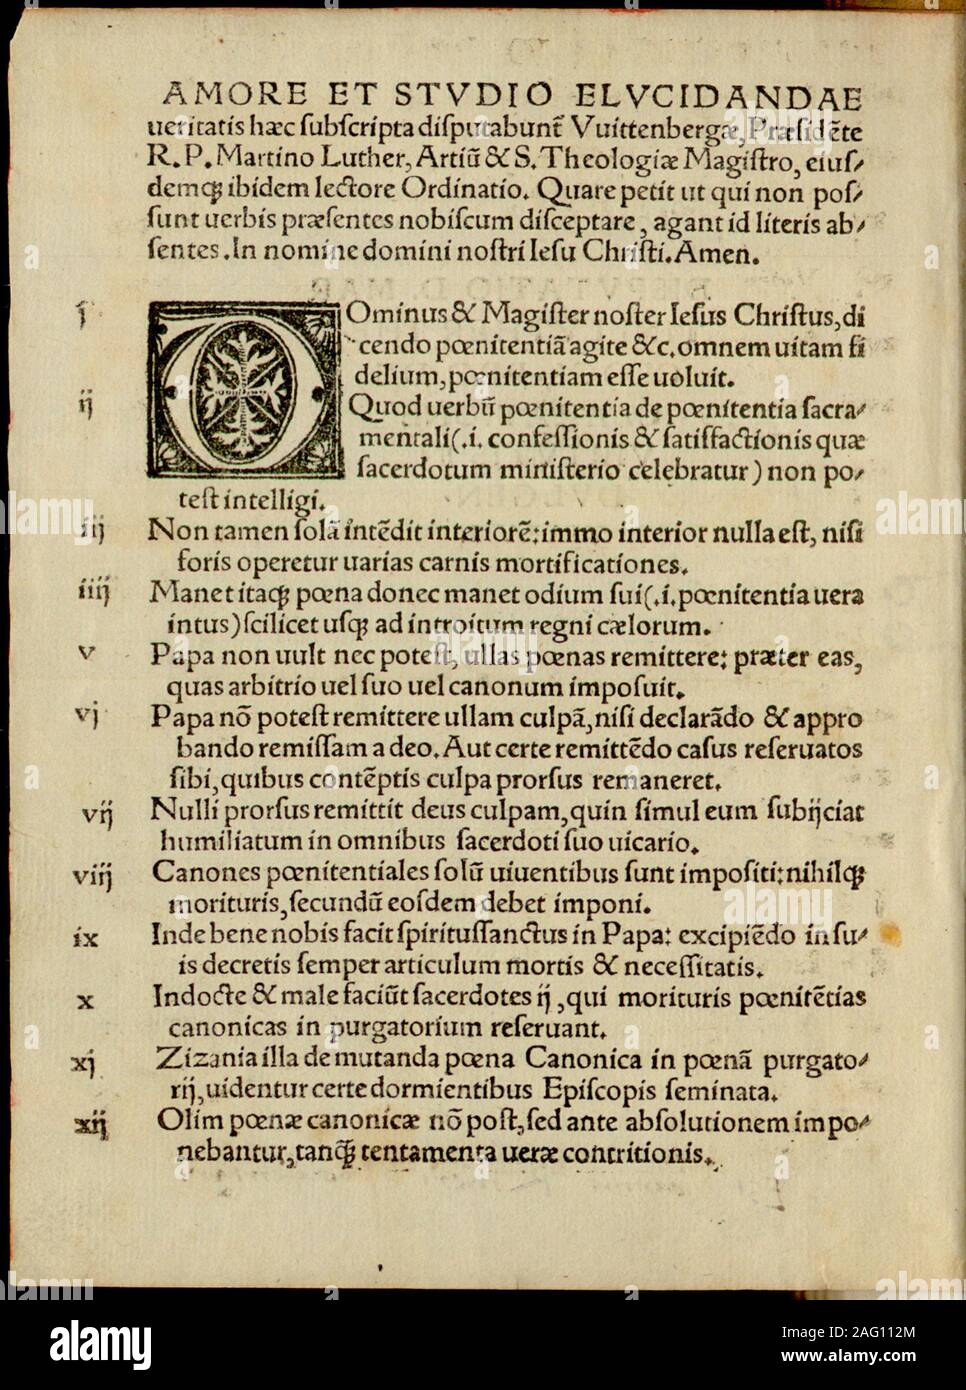 AMORE ET STVDIO ELVCIDANDAE
ueritatis hæc ſubſcripta diſputabunť Vuittenbergæ, Præſidẽte
R. P. Martino Luther, Artiũ & S. Theologiæ Magiſtro, eiuſ⸗
demqꝫ ibidem lectore Ordinatio. Quare petit ut qui non poſ⸗
ſunt uerbis præſentes nobiſcum diſceptare, agant id literis ab⸗
ſentes. In nomine domini noſtri Ieſu Chriſti. Amen.
j DOminus & Magiſter noſter Ieſus Chriſtus, di
cendo pœnitentiã agite &c. omnem uitam fi
delium, pœnitentiam eſſe uoluit.
ij Quod uerbũ pœnitentia de pœnitentia ſacra⸗
mentali (.i. confeſſionis & ſatiſfactionis quæ
ſacerdotum miniſterio celebratur) non po⸗
teſt intelligi.
iij Non tamen ſolã intẽdit interiorẽ: immo interior nulla eſt, niſi
foris operetur uarias carnis mortificationes.
iiij Manet itaqꝫ pœna donec manet odium ſui (.i. pœnitentia uera
intus) ſcilicet uſqꝫ ad introitum regni cælorum.
v Papa non uult nec poteſt, ullas pœnas remittere: præter eas,
quas arbitrio uel ſuo uel canonum impoſuit.
vj Papa nõ poteſt remittere ullam culpã, niſi declarãdo & appro
bando remiſſam a deo. Aut certe remittẽdo caſus reſeruatos
ſibi, quibus contẽptis culpa prorſus remaneret.
vij Nulli prorſus remittit deus culpam, quin ſimul eum ſubijciat
humiliatum in omnibus ſacerdoti ſuo uicario.
viij Canones pœnitentiales ſolũ uiuentibus ſunt impoſiti: nihilqꝫ
morituris, ſecundũ eoſdem debet imponi.
ix Inde bene nobis facit ſpirituſſanctus in Papa: excipiẽdo in ſu⸗
is decretis ſemper articulum mortis & neceſſitatis.
x Indocte & male faciũt ſacerdotes ij, qui morituris pœnitẽtias
canonicas in purgatorium reſeruant.
xj Zizania illa de mutanda pœna Canonica in pœnã purgato⸗
rij, uidentur certe dormientibus Epiſcopis ſeminata.
xij Olim pœnæ canonicæ nõ poſt, ſed ante abſolutionem impo⸗
nebantur, tanqꝫ tentamenta ueræ contritionis.
alamy
Image ID: 2AG112M
www.alamy.com